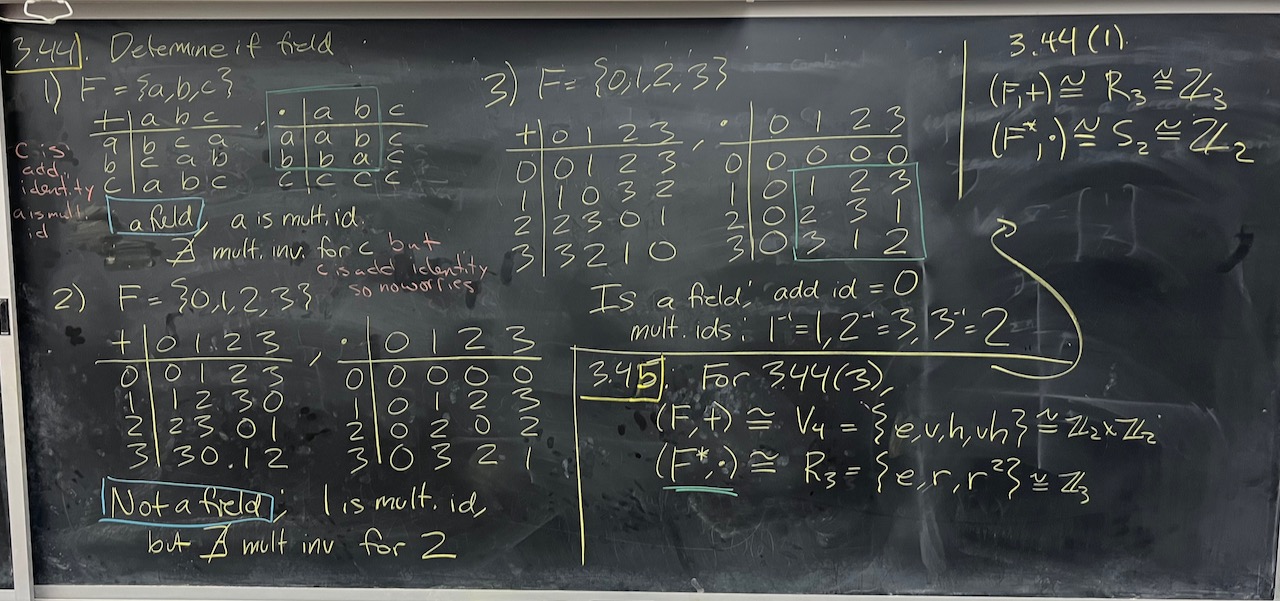 3.44. Determine if field
1) F = {a,b,c}
+ | a b c , · | a b c
a | b c a   a | a b c
b | c a b   b | b a c
c | a b c   c | c c c
c is
add.
identity
a is mult
id
a field, a is mult. id.
∄ mult. inv. for c but
c is add identity
so no worries
2) F = {0,1,2,3}
+ | 0 1 2 3 , · | 0 1 2 3
0 | 0 1 2 3   0 | 0 0 0 0
1 | 1 2 3 0   1 | 0 1 2 3
2 | 2 3 0 1   2 | 0 2 0 2
3 | 3 0 1 2   3 | 0 3 2 1
Not a field; 1 is mult. id,
but ∄ mult inv for 2
3) F = {0,1,2,3}
+ | 0 1 2 3 , · | 0 1 2 3
0 | 0 1 2 3   0 | 0 0 0 0
1 | 1 0 3 2   1 | 0 1 2 3
2 | 2 3 0 1   2 | 0 2 3 1
3 | 3 2 1 0   3 | 0 3 1 2
Is a field; add id = 0
mult. ids: 1⁻¹=1, 2⁻¹=3, 3⁻¹=2
3.45. For 3.44(3),
(F,+) ≅ V₄ = {e,v,h,vh} ≅ ℤ₂×ℤ₂
(F*,·) ≅ R₃ = {e,r,r²} ≅ ℤ₃
3.44(1)
(F,+) ≅ R₃ ≅ ℤ₃
(F*,·) ≅ S₂ ≅ ℤ₂